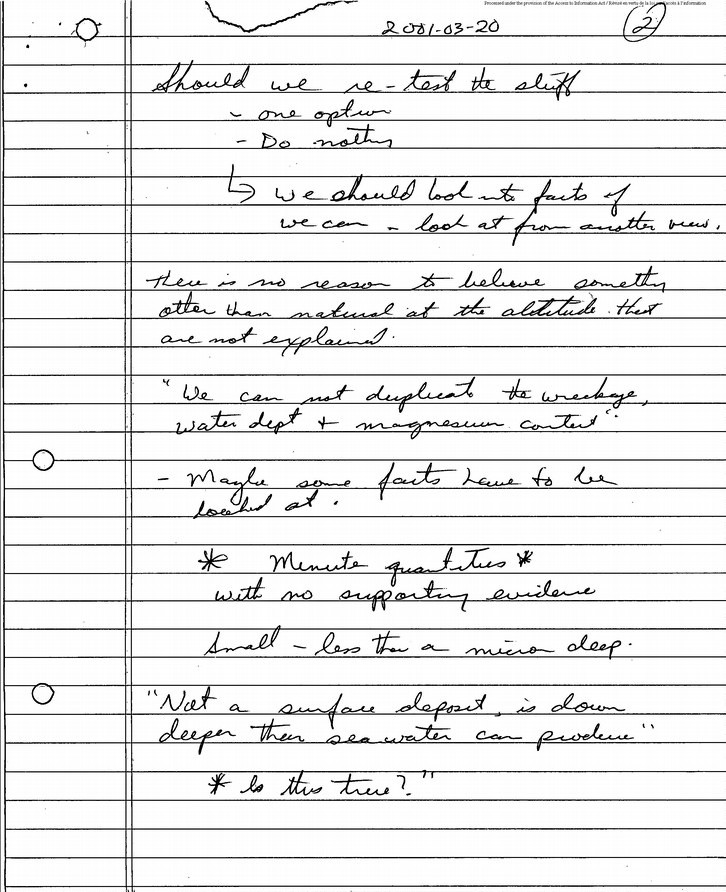 Processed under the provision of the Access to Information Act / Révisé en vertu de la loi sur l'accès à l'information
2001-03-20
2
Should we re-test the stuff
- one option
- Do nothing
↳ we should look into facts if
we can - look at from another view.
There is no reason to believe something
other than natural at the altitude that
are not explained.
"We can not duplicate the wreckage,
water dept + magnesium content".
- Maybe some facts have to be
looked at.
* Menute quantities *
with no supporting evidence
Small - less then a micron deep.
"Not a surface deposit, is down
deeper then sea water can produce"
* Is this true?"